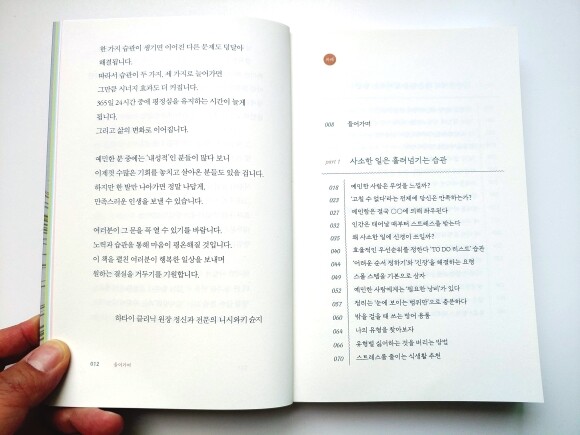 한 가지 습관이 생기면 이어진 다른 문제도 덩달아
해결됩니다.
따라서 습관이 두 가지, 세 가지로 늘어가면
그만큼 시너지 효과도 더 커집니다.
365일 24시간 중에 평정심을 유지하는 시간이 늘게
됩니다.
그리고 삶의 변화로 이어집니다.
예민한 분 중에는 '내성적'인 분들이 많다 보니
이제껏 수많은 기회를 놓치고 살아온 분들도 있을 겁니다.
하지만 한 발만 나아가면 정말 나답게,
만족스러운 인생을 보낼 수 있습니다.
여러분이 그 문을 꼭 열 수 있기를 바랍니다.
노력과 습관을 통해 마음이 평온해질 것입니다.
이 책을 펼친 여러분이 행복한 일상을 보내며
원하는 결실을 거두기를 기원합니다.
하타이 클리닉 원장 정신과 전문의 니시와키 슌지
012 들어가며
차례
008 들어가며
part 1 사소한 일은 흘려넘기는 습관
018 예민한 사람은 무엇을 느낄까?
023 '고칠 수 없다'라는 전제에 당신은 만족하는가?
027 예민함은 결국 ○○에 의해 좌우된다
032 인간은 태어날 때부터 스트레스를 받는다
035 왜 사소한 일에 신경이 쓰일까?
040 효율적인 우선순위를 정한다 'TO DO 리스트' 습관
044 '어려운 순서 정하기'와 '긴장'을 해결하는 요령
049 스몰 스텝을 기본으로 삼자
052 예민한 사람에게는 '필요한 낭비'가 있다
057 정리는 '눈에 보이는 범위만'으로 충분하다
060 밖을 걸을 때 쓰는 방어 용품
064 나의 유형을 찾아보자
066 유형별 싫어하는 것을 버리는 방법
070 스트레스를 줄이는 식생활 추천